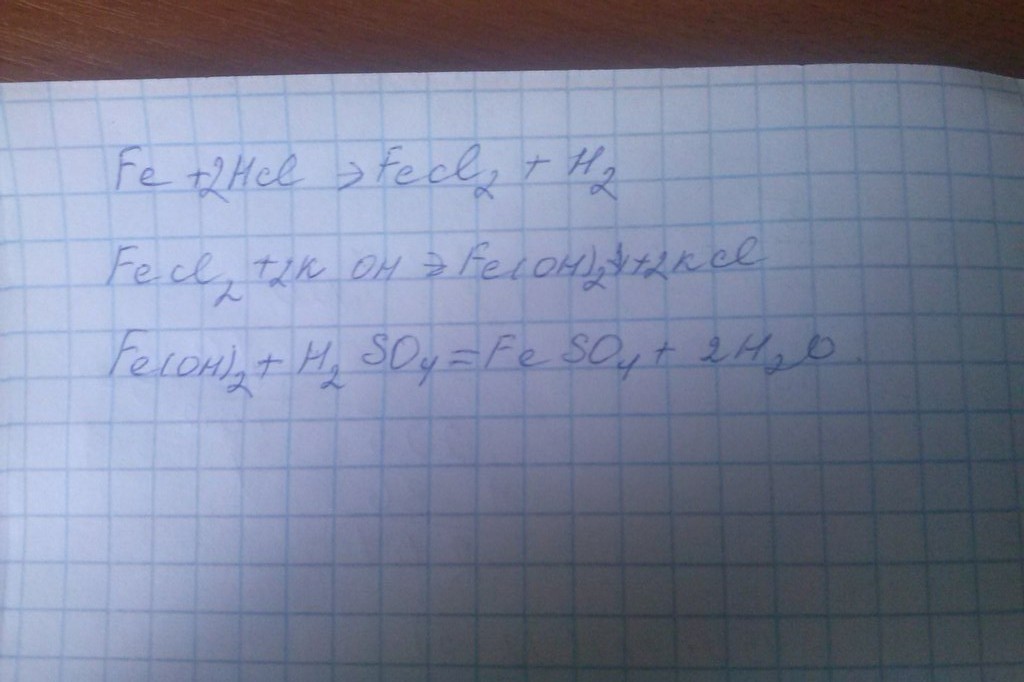 Fe +2HCl → FeCl₂ + H₂
FeCl₂ +2KOH → Fe(OH)₂↓+2KCl
Fe(OH)₂ + H₂SO₄ = FeSO₄ + 2H₂O